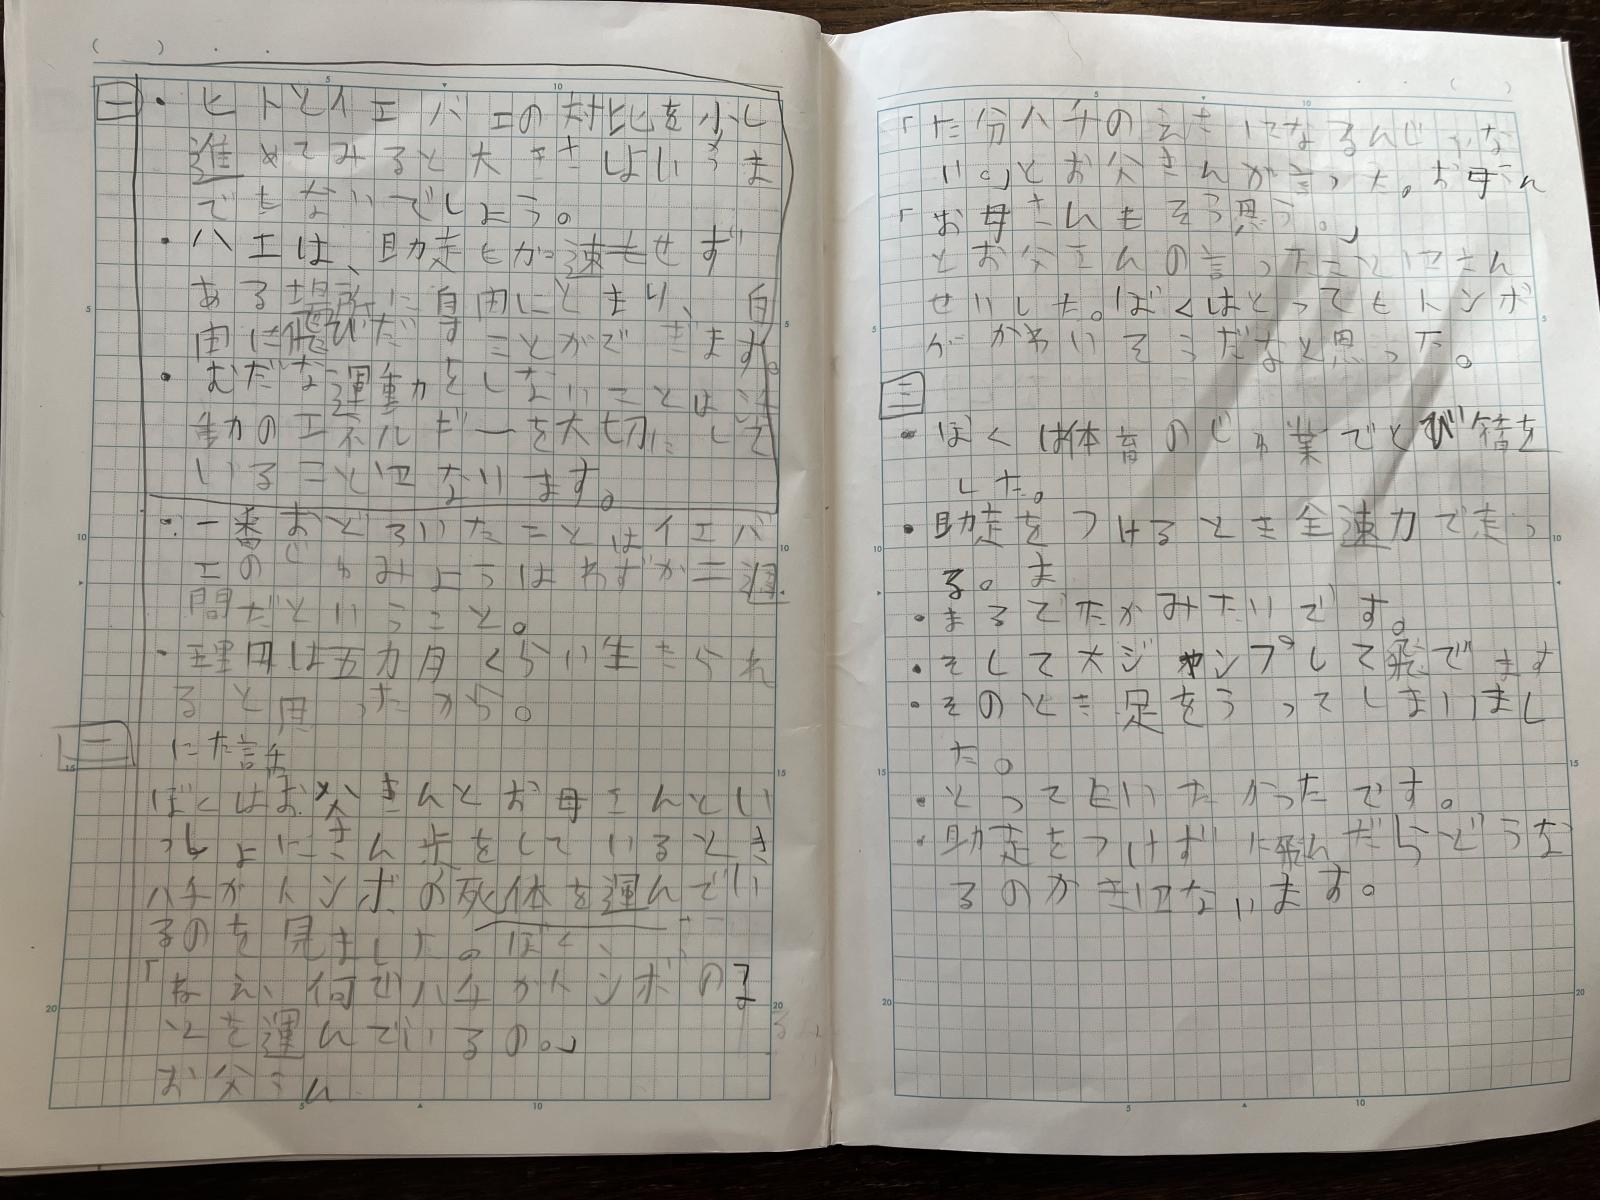 一
・ヒトスイエバエの対比を少し
進めてみると大きさはいうま
でもないでしょう。
・ハエは、助走もか速もせず
ある場所に自由にとまり、自
由に飛びだすことができます。
・むだな運動をしないことは活
動のエネルギーを大切にして
いることになります。
・一番おどろいたことはイエバ
エのじゅみょうはわずか二週
間だということ。
・理由は五カ月くらい生きら れ
ると思ったから。
二
にた話
ぼくはお父さんとお母さんとい
っしょにさん歩をしているとき
ハチがトンボの死体を運んでい
るのを見ました。ぼく、
「ねえ、何でハチがトンボの
を運んでいるの。」
お父さん
「た分ハチのえさになるんじゃな
い。」とお父さんが言った。お母さん
「お母さんもそう思う。」
とお父さんの言ったことにさん
せいした。ぼくはとってもトンボ
がかわいそうだなと思った。
三
・ぼくは体育のじゅ業でとび箱を
した。
・助走をつけるとき全速力で走っ
る。ま
・まるでたかみたいです。
・そして大ジャンプして飛でます
・そのとき足をうってしまいまし
た。
・とってもいたかったです。
・助走をつけずに飛んだらどうな
るのかきになります。